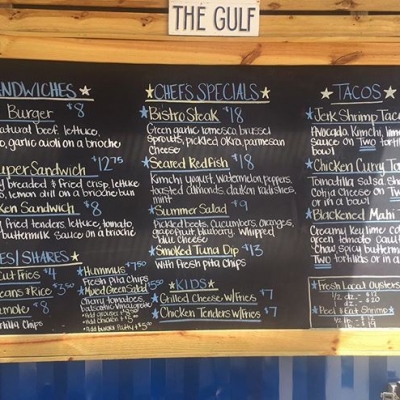 THE GULF
SANDWICHES
Burger $8
natural beef, lettuce,
garlic aioli on a brioche
Super Sandwich $12.75
breaded & fried crisp lettuce
lemon dill on a brioche bun
Chicken Sandwich $8
fried tenders, lettuce, tomato
buttermilk sauce on a brioche
SIDES / SHARES
Cut Fries $4
Beans & Rice $3.50
Chips
Hummus $7.50
Fresh Pita Chips
Mixed Green Salad
Cherry tomatoes,
balsamic vinaigrette
CHEFS SPECIALS
Bistro Steak $18
Green garlic romesca brussel
sprouts, pickled okra, parmesan
Cheese
Seared Redfish $18
Kimchi yogurt, watermelon peppers,
toasted almonds, daikon radishes,
mint
Summer Salad $9
Pickled beets, Cucumbers, oranges,
grapefruit, blueberry, Whipped
blu cheese
Smoked Tuna Dip $13
with Fresh pita chips
KIDS
Grilled Cheese w/Fries $7
Chicken Tenders w/Fries $7
TACOS
Jerk Shrimp Taco
Avocado, Kimchi, lime
sauce on Two tortillas
bowl
Chicken Curry Ta
Tomatillo salsa
Cotija Cheese on Two
or in a bowl
Blackened Mahi T
Creamy key lime co
green tomato
Chow spicy butter
Two tortillas or in a
Fresh Local Oysters
1/2 dz
Peel & Eat Shrimp